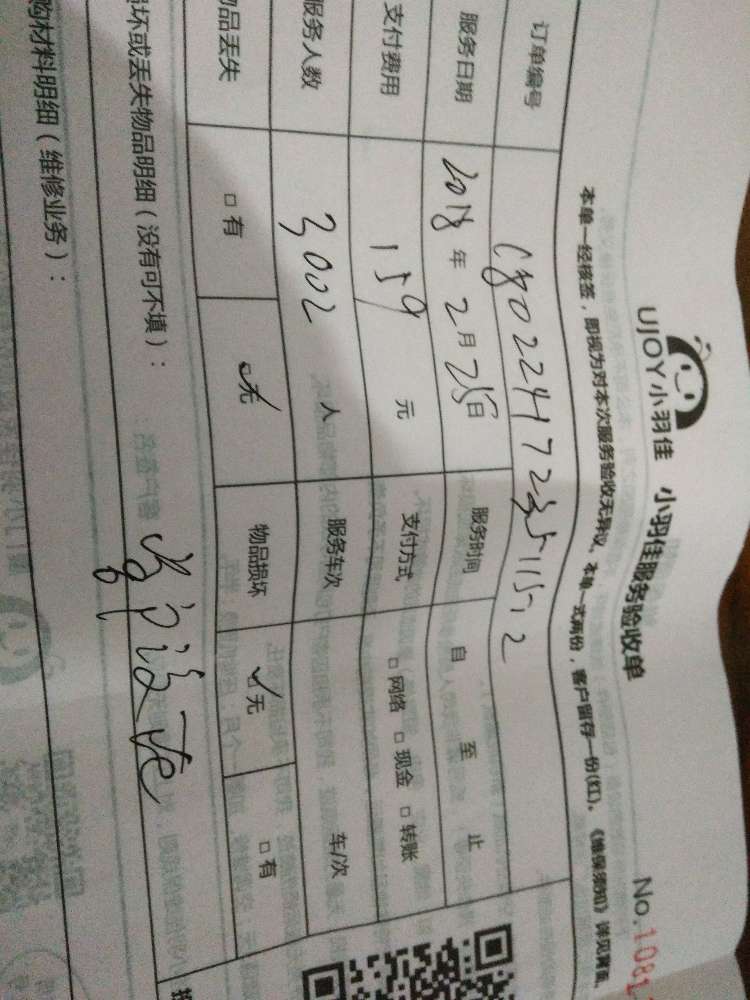 UJOY小羽佳 小羽佳服务验收单
No.1081
本单一经核签，即视为对本次服务验收无异议。本单一式两份，客户留存一份(红)。《维保须知》详见背面。
订单编号
服务日期 2018 年 2 月 25 日 服务时间 自 至 止
支付费用 159 元 支付方式 □ 网络 □ 现金 □ 转账
服务人数 3002 人 服务车次 车/次
物品丢失 □ 有 ✓无 物品损坏 ✓无 □ 有
损坏或丢失物品明细（没有可不填）：
购材料明细（维修业务）：